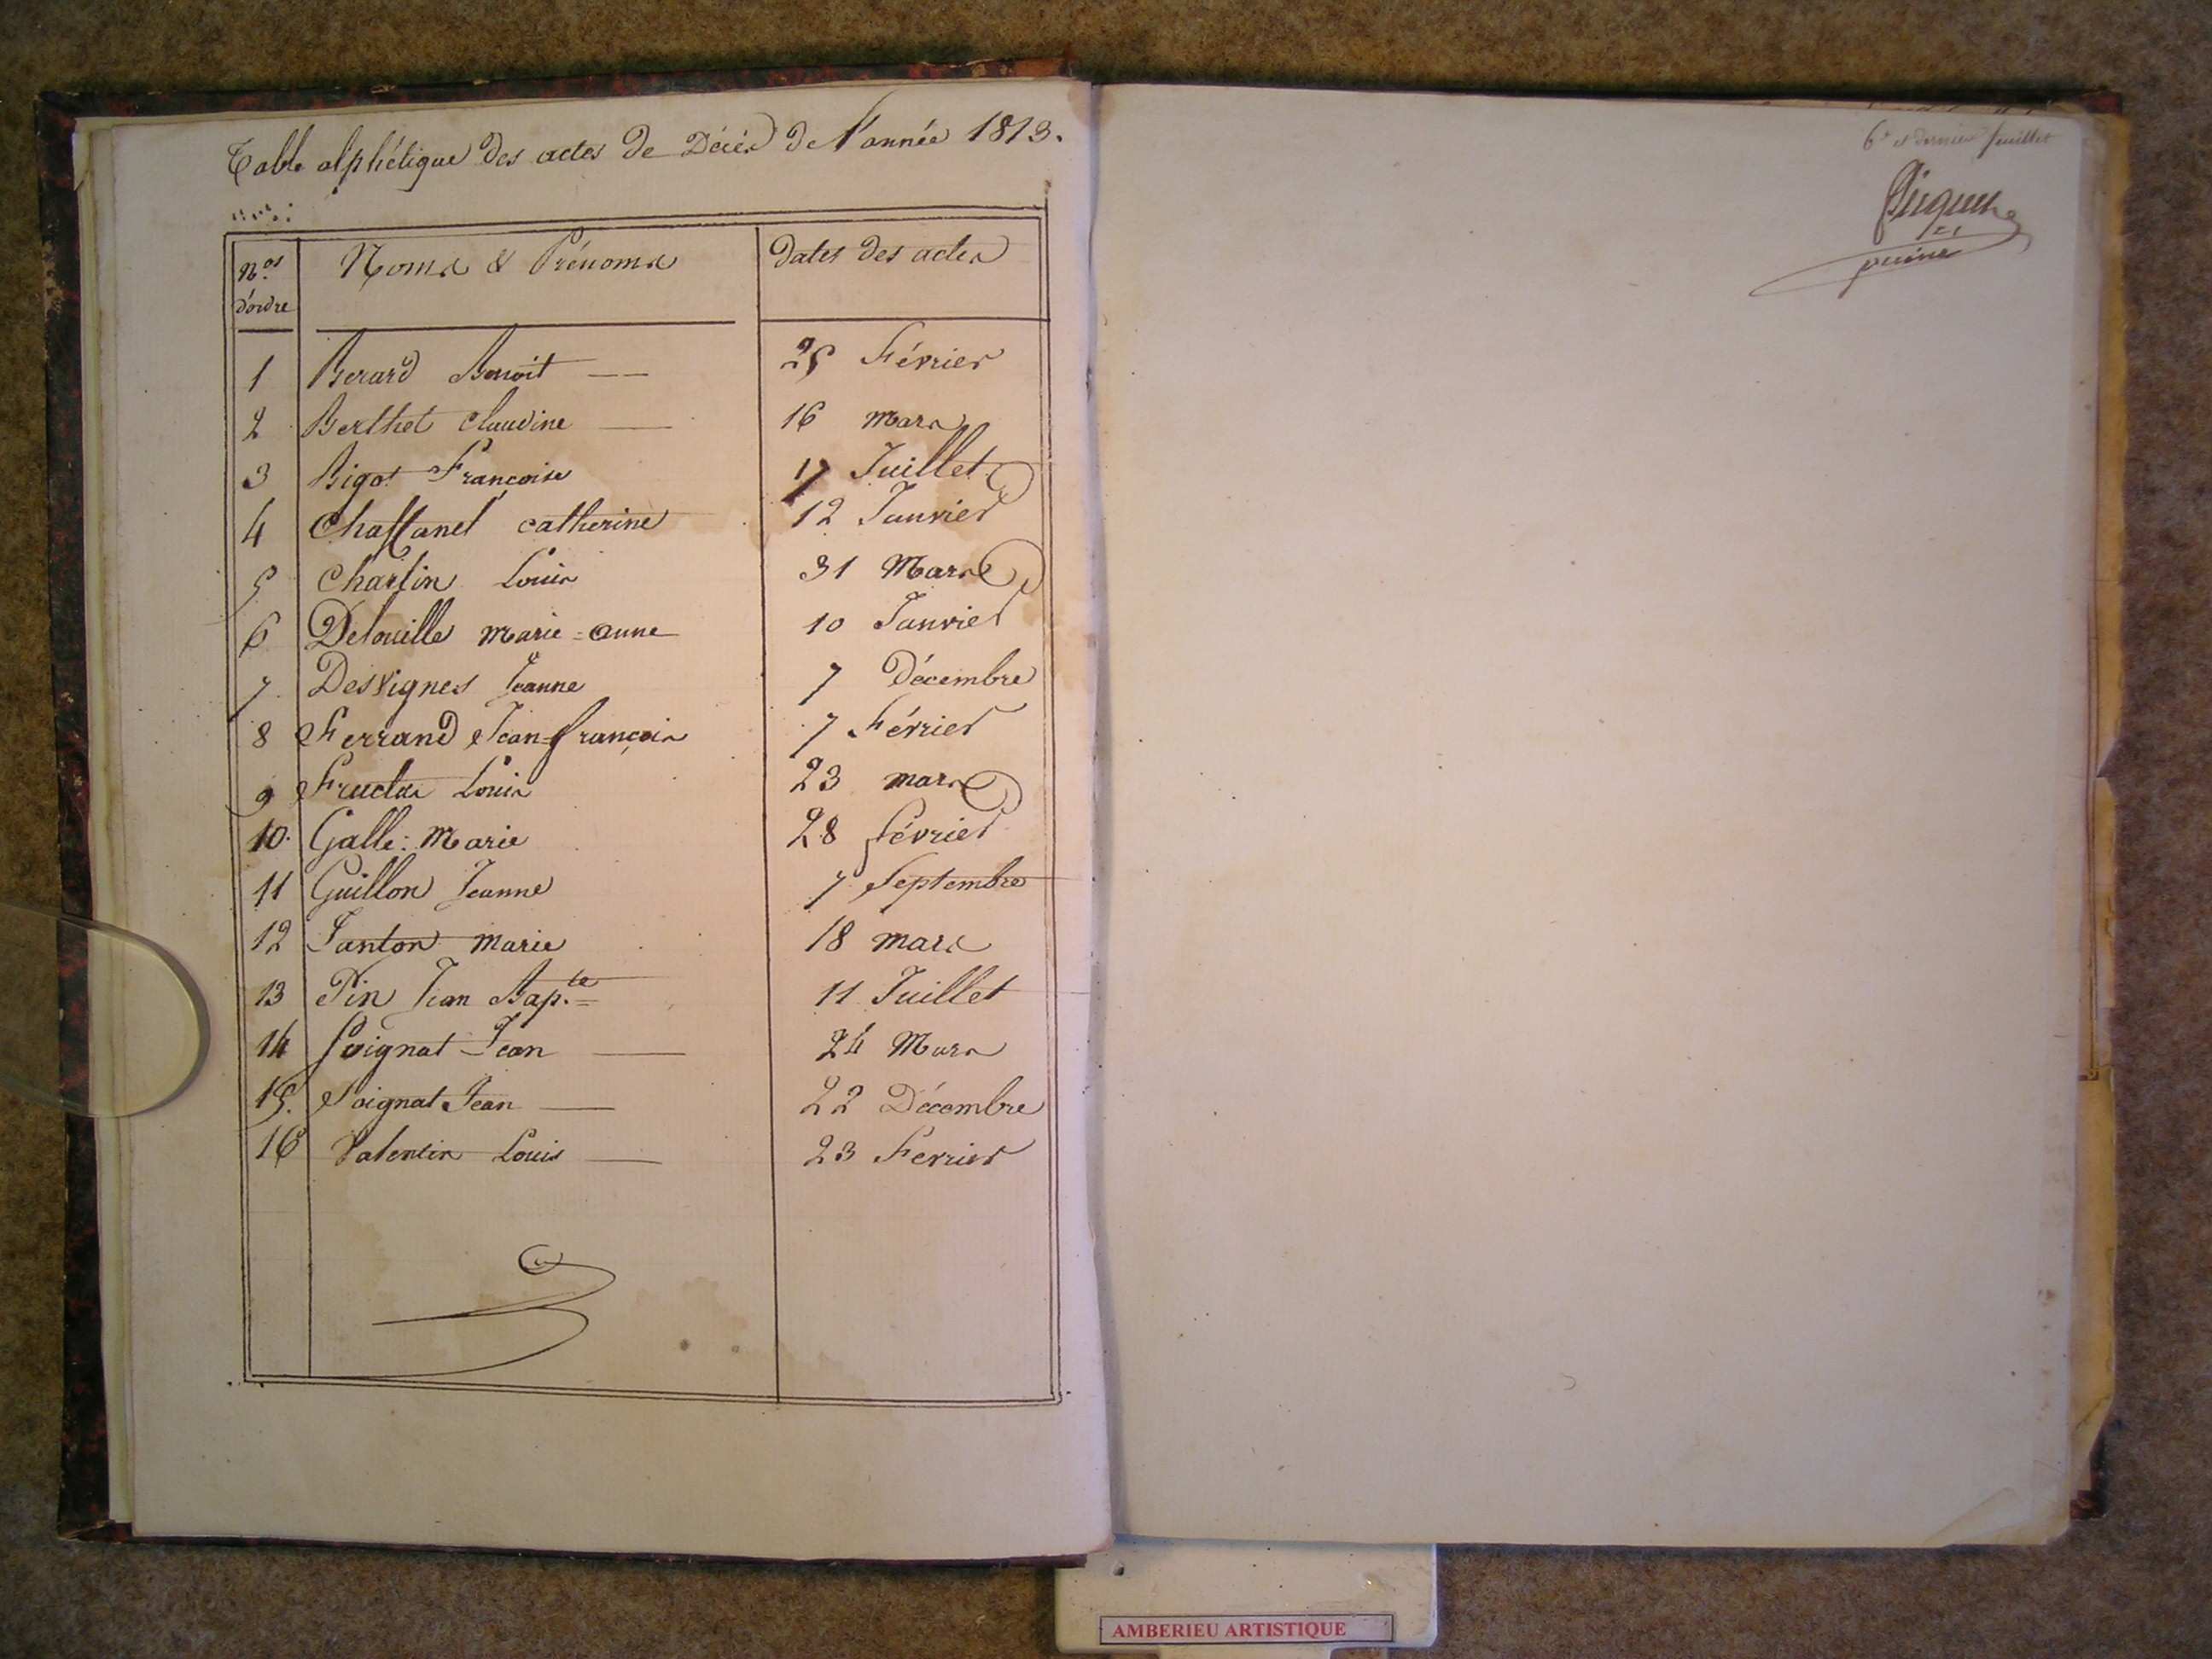 Table alphétique des actes de Décès de l'année 1813.
Nos d'ordre Noms & Prénoms Dates des actes
1 Berard Benoit 25 Février
2 Berthet Claudine 16 mars
3 Bigot Françoise 17 Juillet
4 Chastanel catherine 12 Janvier
5 Charlin Louis 31 Mars
6 Delouille marie = anne 10 Janvier
7 Desvignes Jeanne 7 Décembre
8 Ferrand Jean=françois 7 Février
9 Fructus Louis 23 mars
10. Galle: Marie 28 février
11 Guillon Jeanne 7 Septembre
12 Janton marie 18 mars
13 Pin Jean Bap.te 11 Juillet
14 Soignat Jean 24 Mars
15. Soignat Jean 22 Décembre
16 Valentin Louis 23 Fevrier
6e et dernier feuillet
AMBERIEU ARTISTIQUE